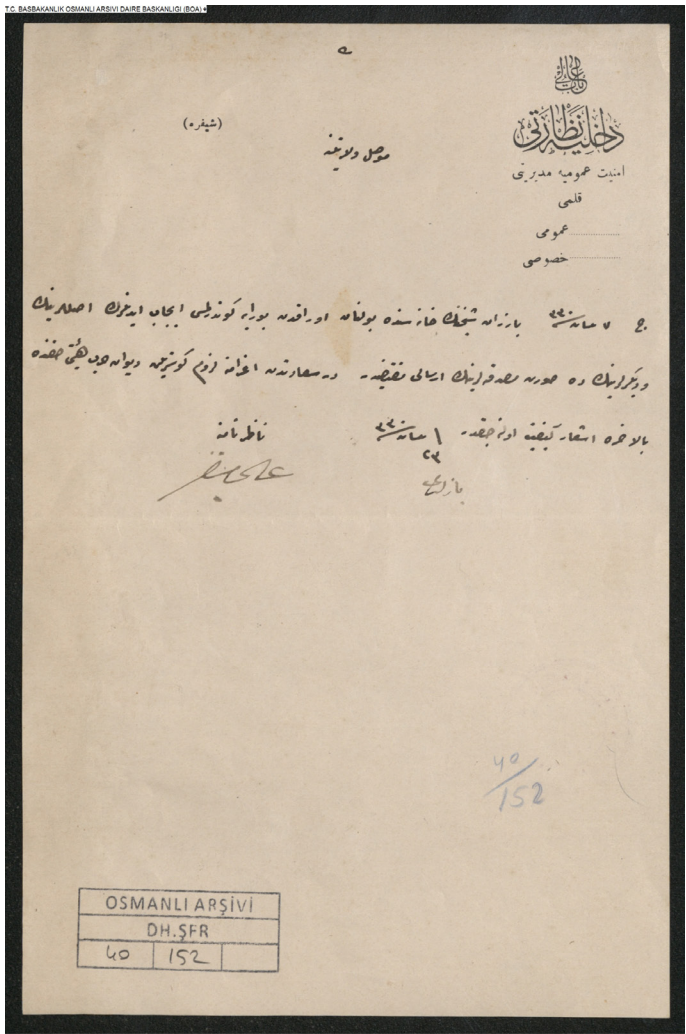 T.C. BASBAKANLIK OSMANLI ARSIVI DAIRE BASKANLIGI (BOA)
باب عالی
داخلیه نظارتی
امنیت عمومیه مدیریتی
قلمی
عمومی
خصوصی
(شیفره)
موصل ولایتنه
ج ٧ ٣٣٠ بارزان شیخنك خانه سنده بولنان اوراقدن بورایه كوندرلمسی ایجاب ایدنلرك اصللرینك
و دیكرلرینك ده صورت مصدقه لرینك ارسالی مقتضیدر در سعادتدن اعزامنه لزوم كوستریلن دیوان حرب هیئتی حقنده
بالاخره اشعار كیفیت اولنه جقدر ٣٣٠
٢٣
ناظر نامنه
40/152
OSMANLI ARŞİVİ
DH.ŞFR
40 152